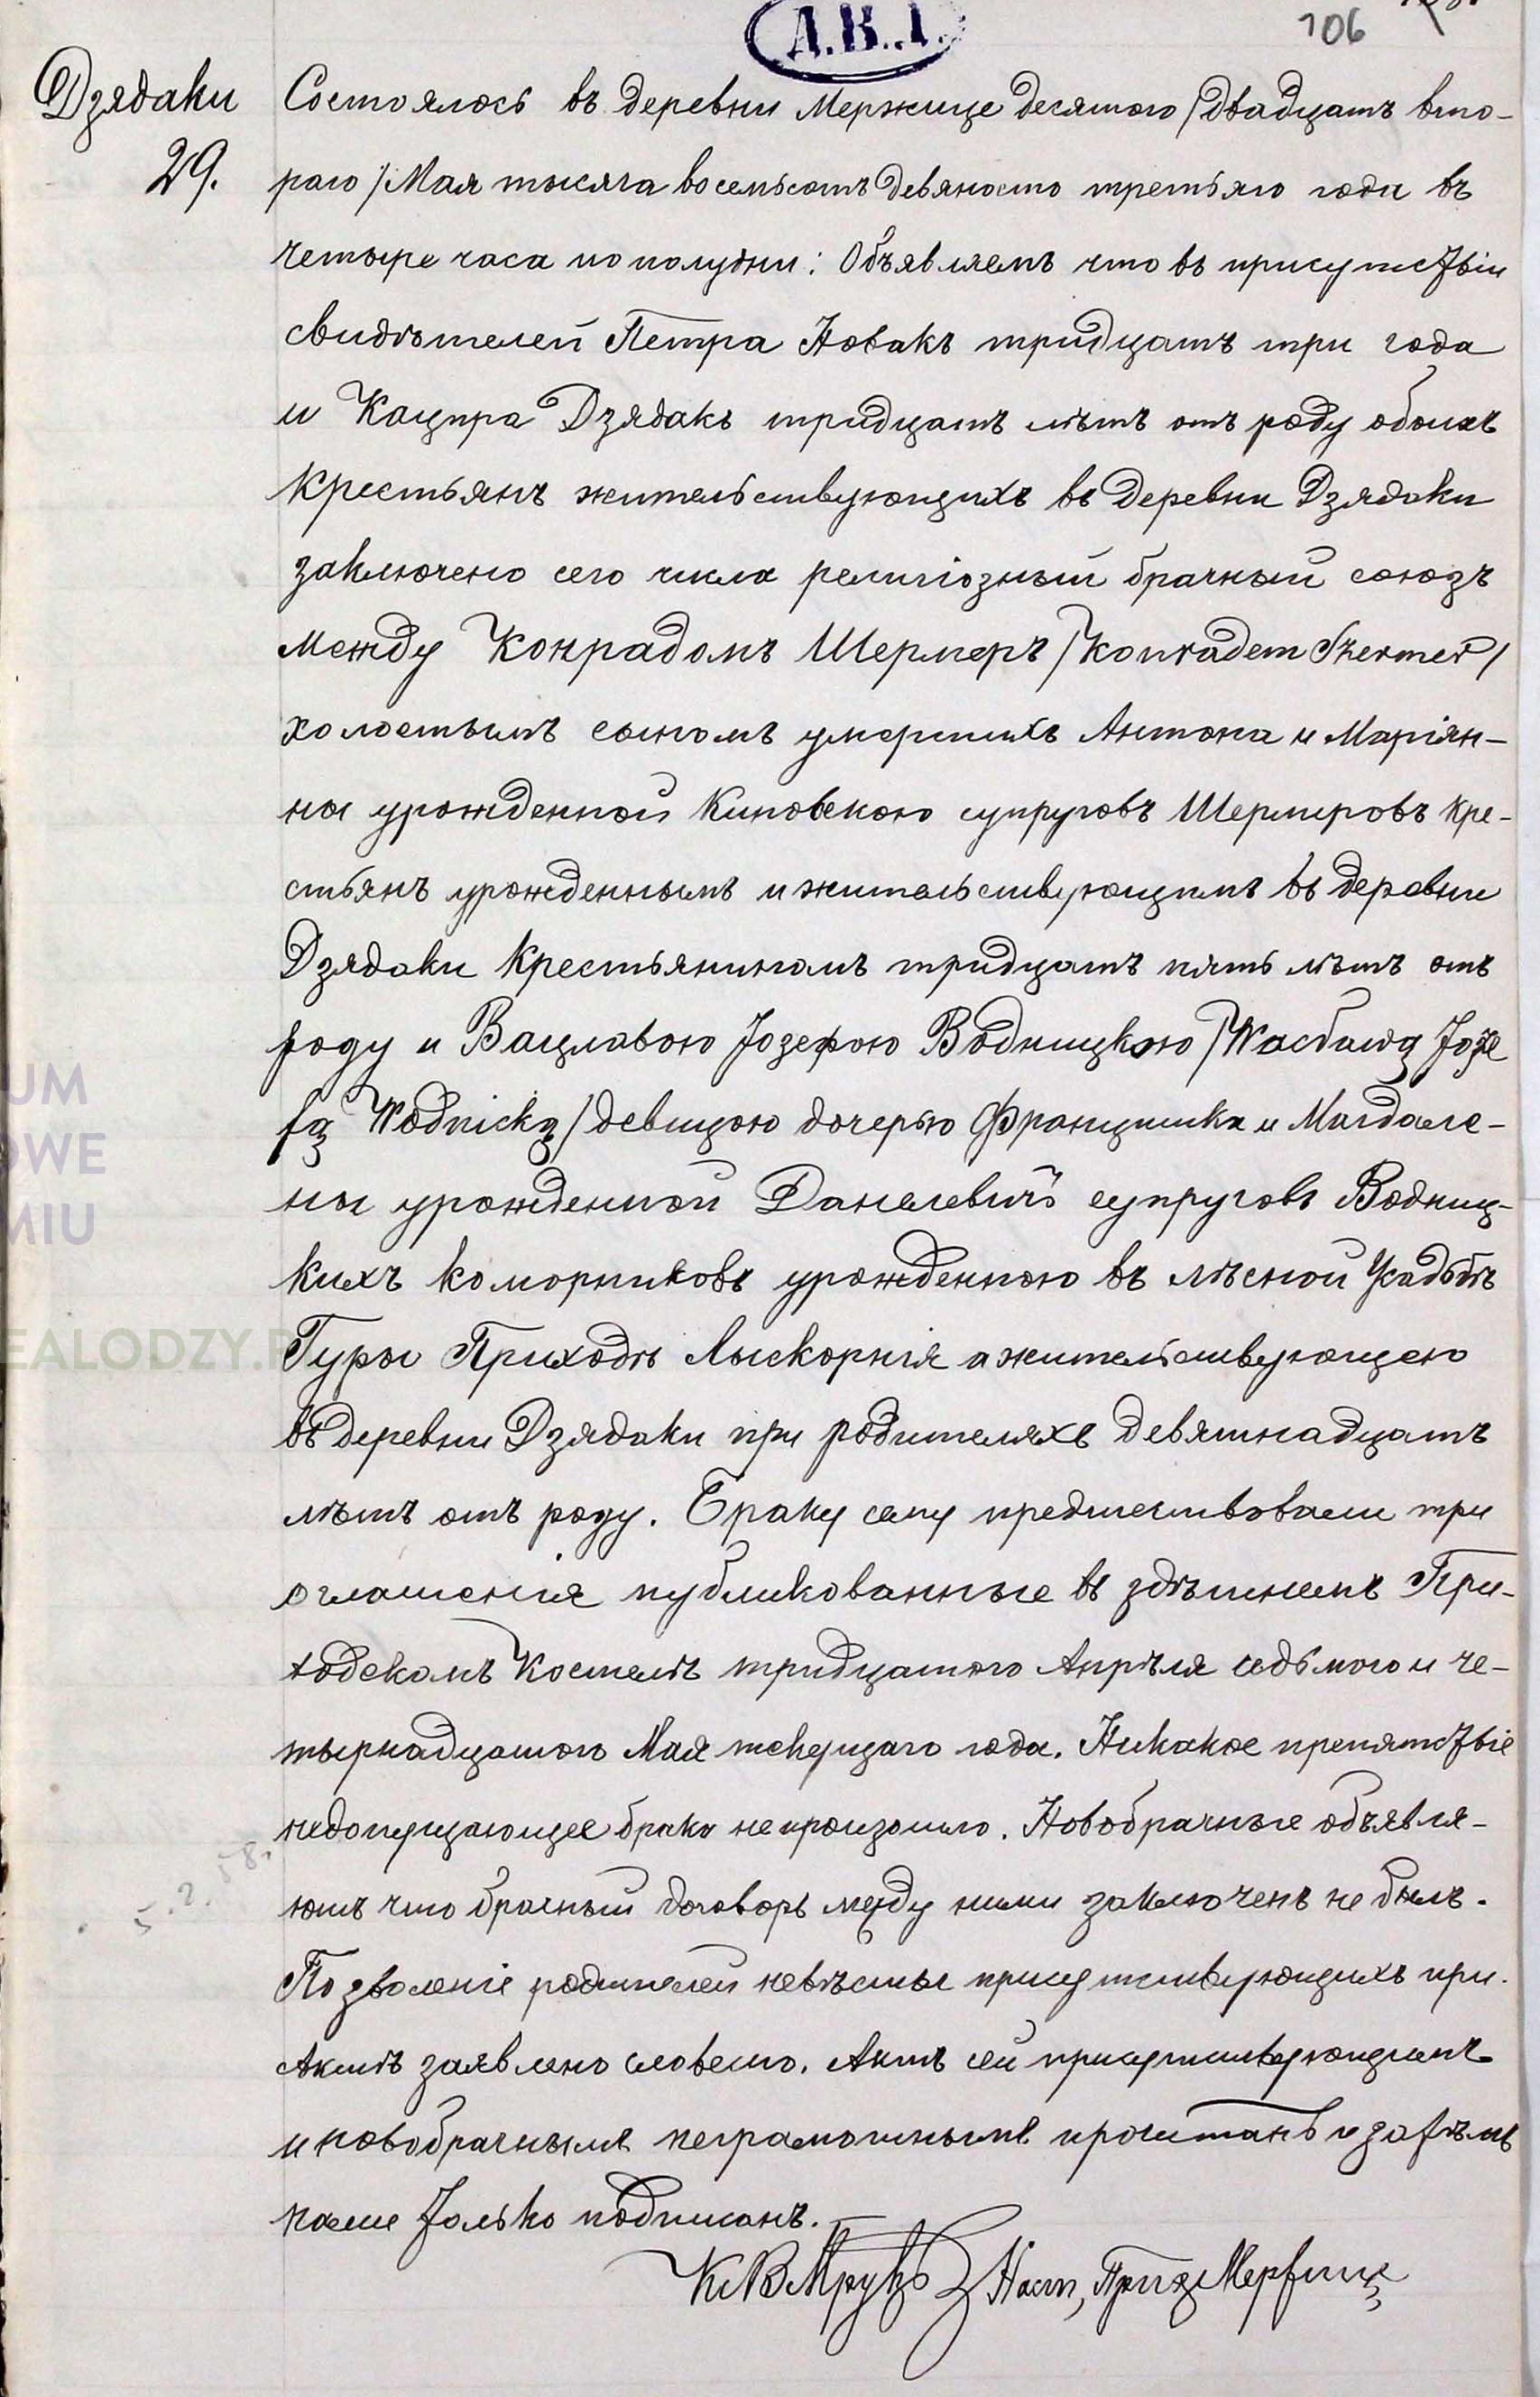 А.В.1.
106
Дзядаки
29.
Состоялось въ деревни Мержице десятого /двадцать вто-
раго/ Мая тысяча восемьсотъ девяносто третьяго года въ
четыре часа по полудни: Объявляемъ что въ присутствіи
свидѣтелей Петра Новакъ тридцать три года
и Кацпра Дзядакъ тридцать лѣтъ отъ роду обоихъ
крестьянъ жительствующихъ въ деревни Дзядаки
заключено сего числа религіозный брачный союзъ
между Конрадомъ Шермеръ /Konradem Szermer/
холостымъ сыномъ умершихъ Антона и Маріян-
ны урожденной Киповскою супруговъ Шермеровъ кре-
стьянъ урожденнымъ и жительствующимъ въ деревни
Дзядаки крестьяниномъ тридцать пять лѣтъ отъ
роду и Вацлавою Јозефою Водницкою /Wacławą Joze
fą Wodnicką/ девицою дочерью Францишка и Магдале-
ны урожденной Даналевичъ супруговъ Водниц-
кихъ коморниковъ урожденною въ лѣсной Усадьбѣ
Гуры Приходѣ Лыскорнія а жительствующею
въ деревни Дзядаки при родителяхъ девятнадцать
лѣтъ отъ роду. Браку сему предшествовали три
оглашенія публикованные въ здѣшнемъ При-
ходскомъ Костелѣ тридцатого Апрѣля седьмого и че-
тырнадцатого Мая текущаго года. Никакое препятствіе
недопущающее брака непроизошло. Новобрачные объявля-
ютъ что брачный договоръ между ними заключенъ не былъ.
Позволеніе родителей невѣсты присутствующихъ при
Актѣ заявлено словесно. Актъ сей присутствующимъ
и новобрачнымъ неграмотнымъ прочитанъ и затѣмъ
нами только подписанъ.
Кс В Мрувъ Наст, Прих Мержице
5.2.58.
UM
OWE
MIU
EALODZY.P